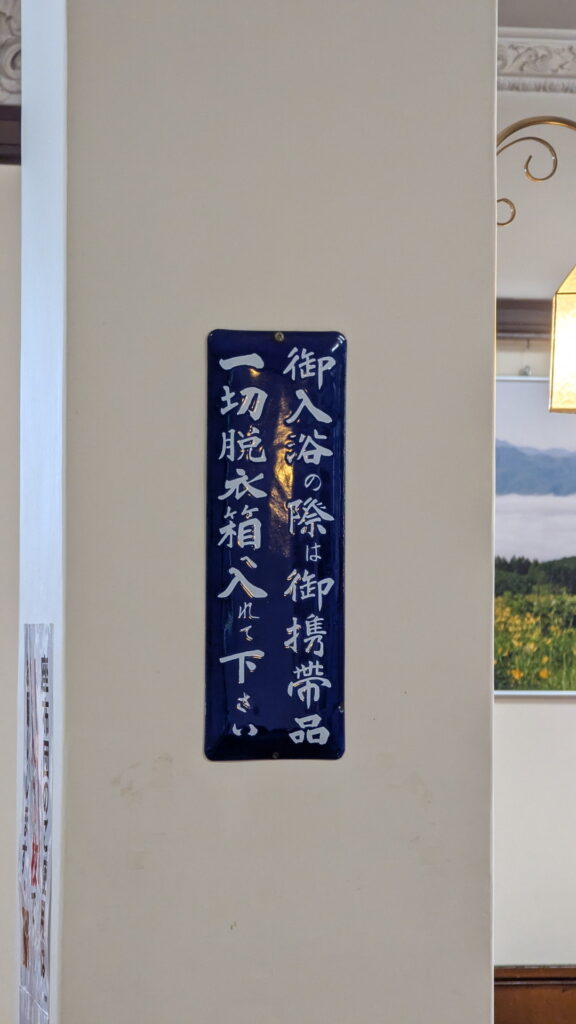 御入浴の際は御携帯品
一切脱衣箱へ入れて下さい